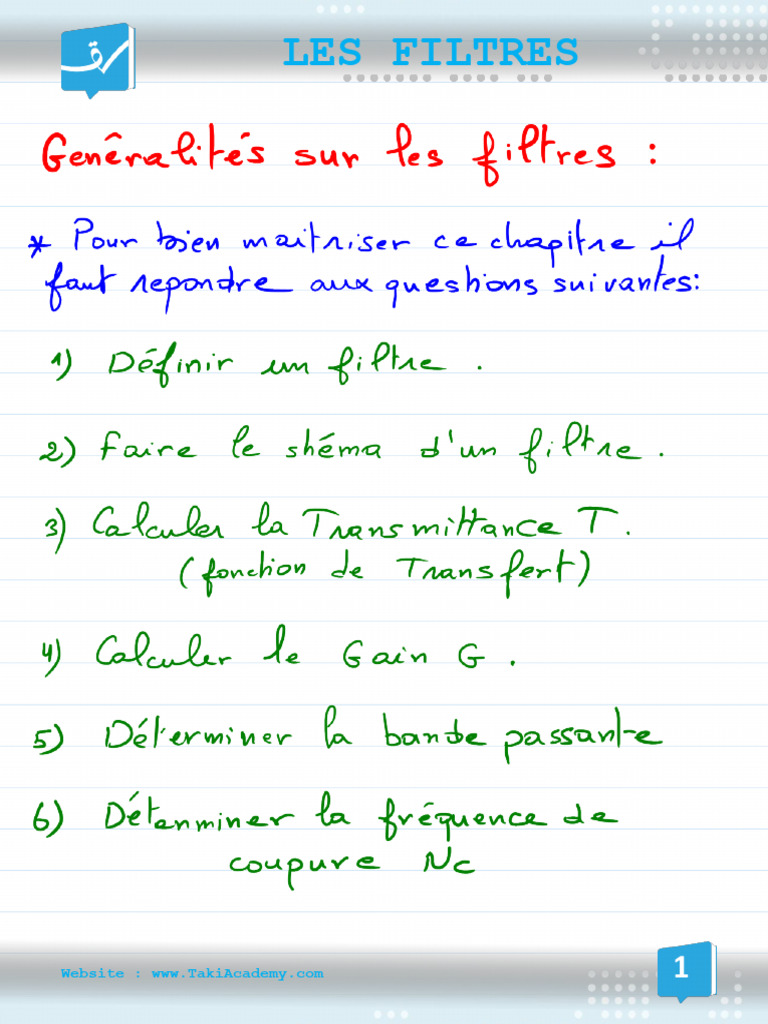 LES FILTRES
Genéralités sur les filtres :
* Pour bien maitriser ce chapitre il
faut repondre aux questions suivantes:
1) Définir un filtre .
2) Faire le shéma d'un filtre .
3) Calculer la Transmittance T.
(fonction de Transfert)
4) Calculer le Gain G .
5) Déterminer la bande passante
6) Déterminer la fréquence de
coupure Nc
Website : www.TakiAcademy.com
1